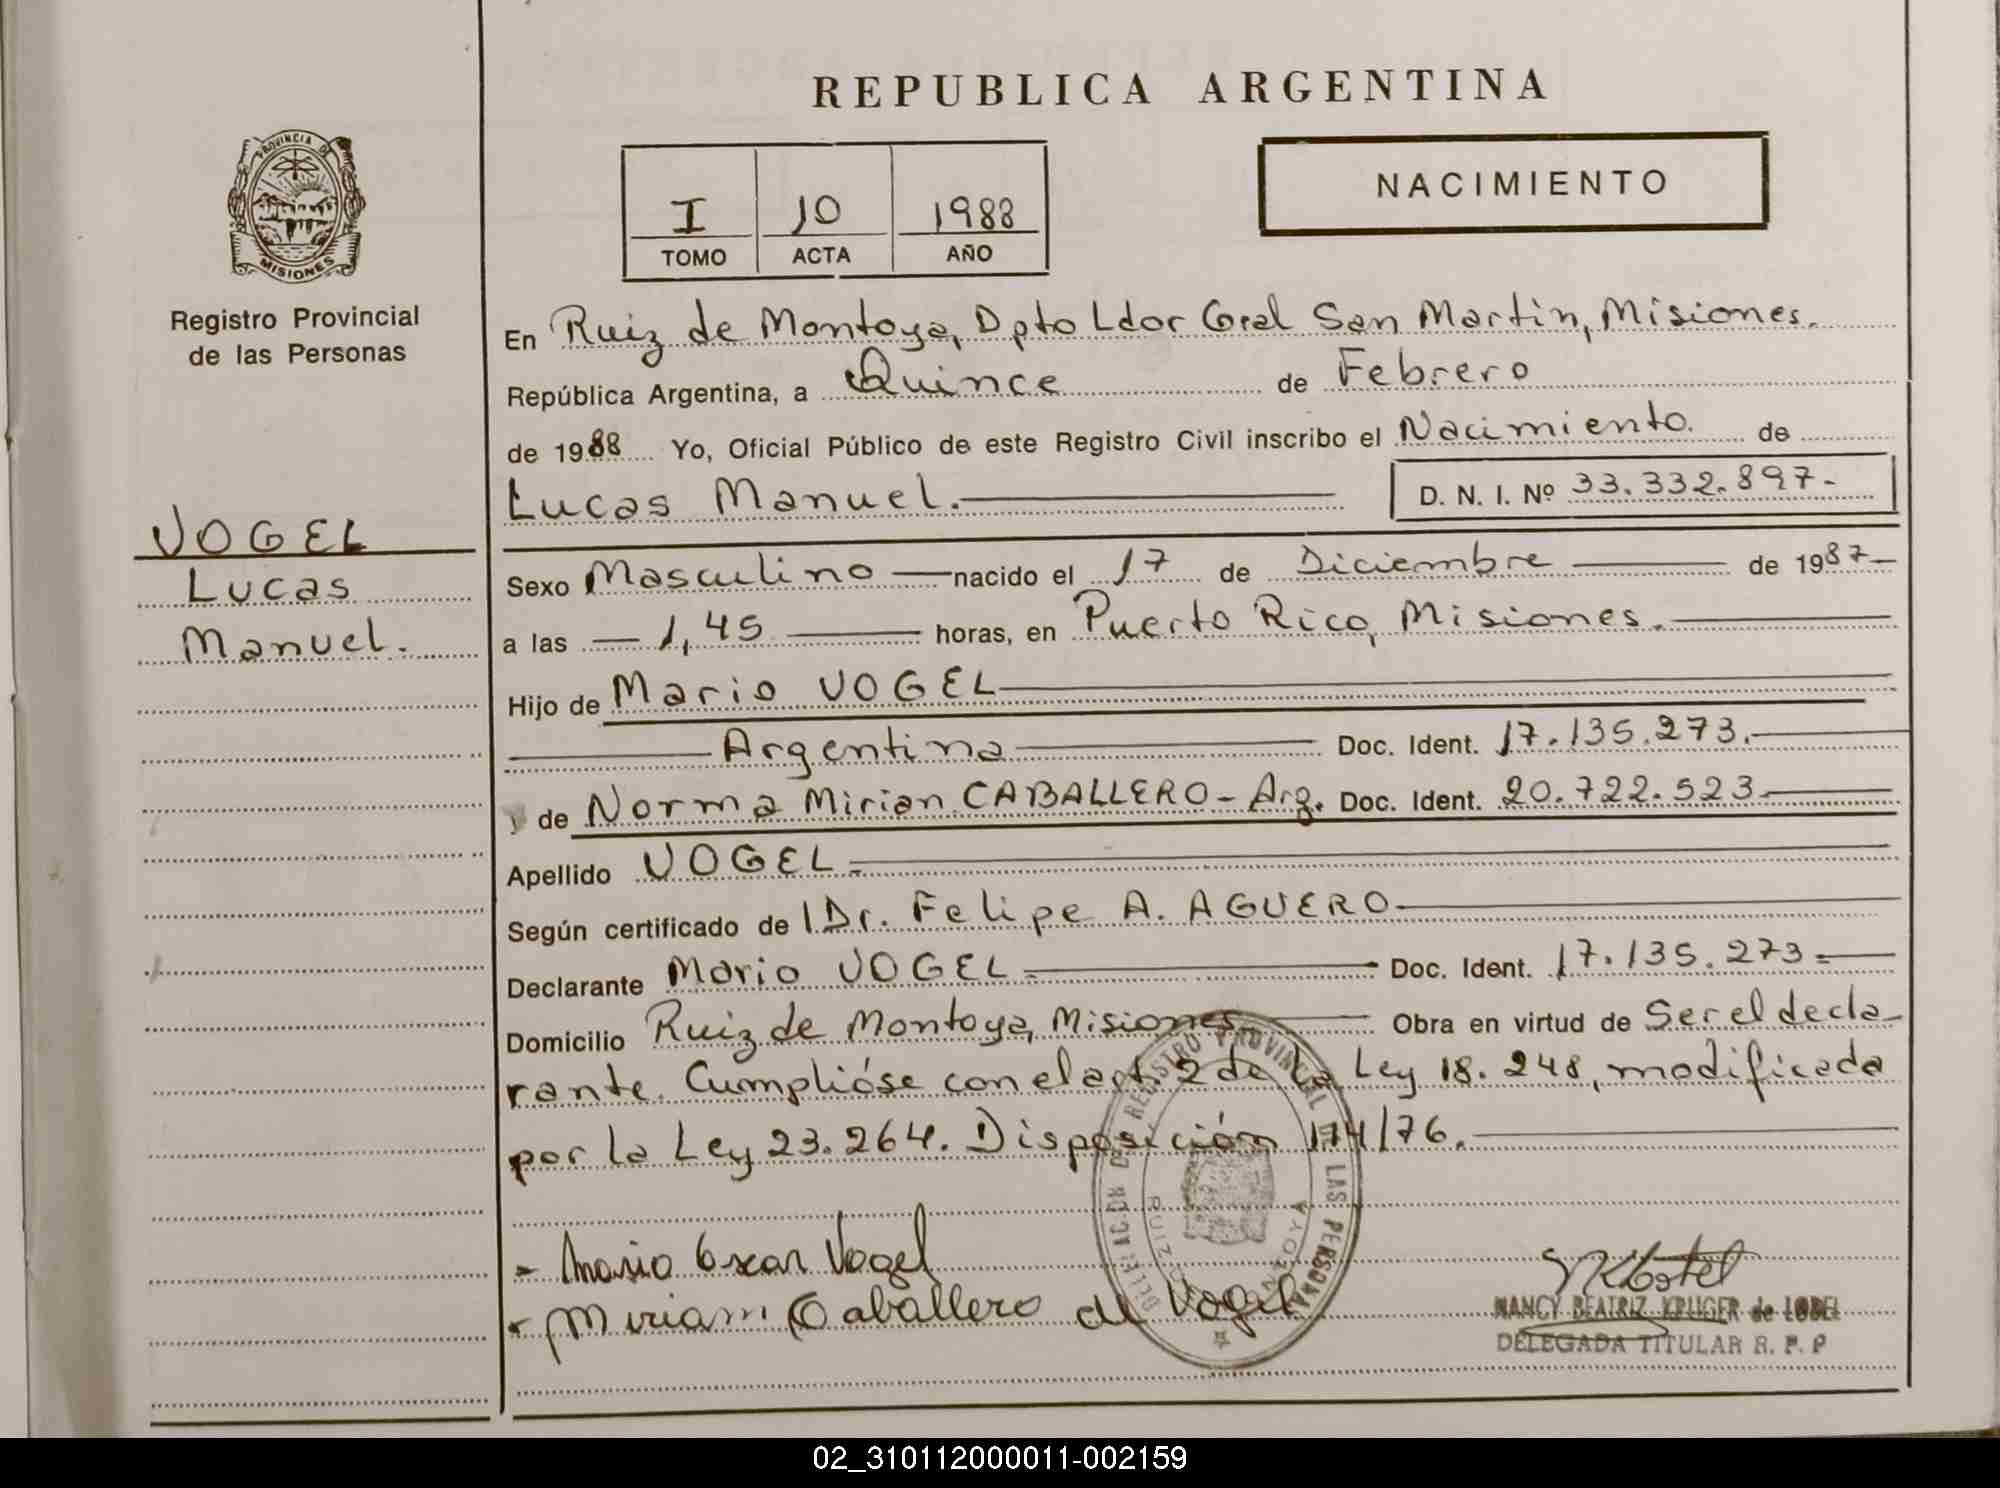 REPUBLICA ARGENTINA
PROVINCIA DE
MISIONES
Registro Provincial
de las Personas
I 10 1988
TOMO ACTA AÑO
NACIMIENTO
En Ruiz de Montoya, Dpto Ldor Gral San Martin, Misiones.
República Argentina, a Quince de Febrero
de 1988 Yo, Oficial Público de este Registro Civil inscribo el Nacimiento. de
Lucas Manuel. D. N. I. Nº 33.332.897.-
VOGEL
Lucas
Manuel.
Sexo Masculino — nacido el 17 de Diciembre — de 1987-
a las — 1,45 — horas, en Puerto Rico, Misiones.
Hijo de Mario VOGEL
Argentina Doc. Ident. 17.135.273.
y de Norma Mirian CABALLERO - Arg. Doc. Ident. 20.722.523.
Apellido VOGEL.
Según certificado de l Dr. Felipe A. AGUERO
Declarante Mario VOGEL. Doc. Ident. 17.135.273.
Domicilio Ruiz de Montoya, Misiones Obra en virtud de Ser el decla-
rante. Cumplióse con el art. 2 de la Ley 18.248, modificada
por la Ley 23.264. Disposición 174/76.
- Mario Oscar Vogel
- Miriam Caballero de Vogel
REGISTRO PROVINCIAL DE LAS PERSONAS
RUIZ DE MONTOYA
NANCY BEATRIZ KRUGER de LOBEL
DELEGADA TITULAR R. P. P
02_310112000011-002159